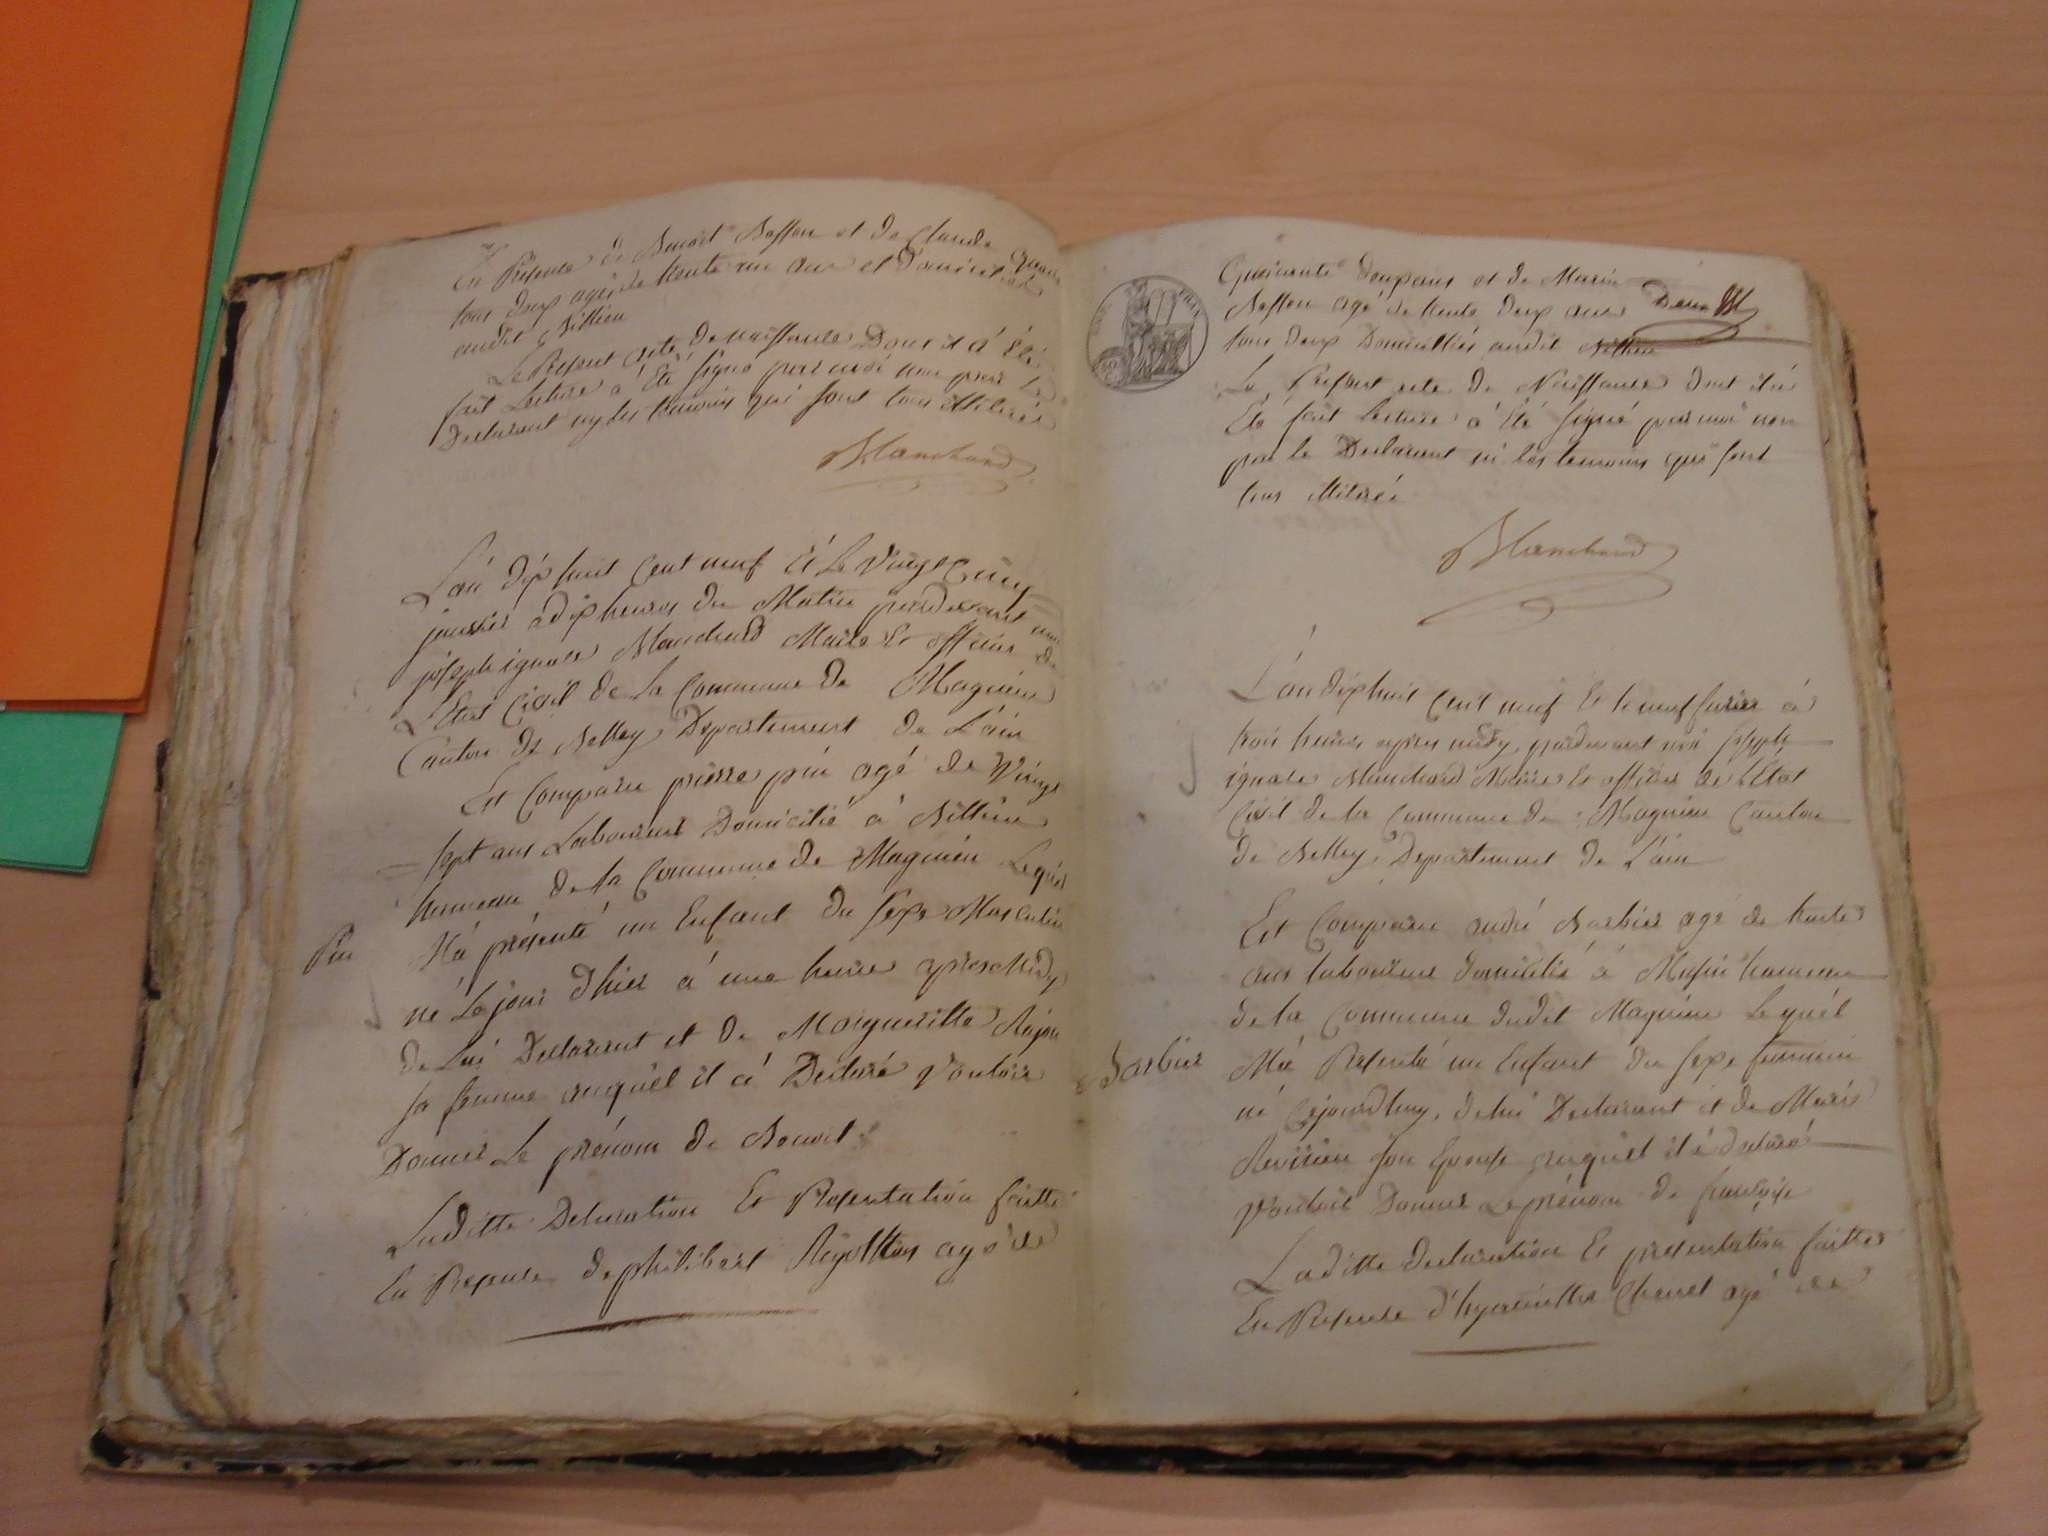 En Présence de Benoit Besson et de Claude
tous deux agés de trente un ans et Domiciliés
audit Billieu
Le Présent acte de naissance Dont il a Eté
fait Lecture a Eté signé par moi non par le
Declarant ny les temoins qui sont tous illiterés
Blanchard
L'an dix huit Cent neuf Et Le Vingt Cinq
janvier à dix heures du Matin pardevant moi
joseph ignace Blanchard Maire Et officier de
L'Etat Civil de La Commune de Magnieu
Canton de Belley Departement de L'ain
Est Comparu pierre pin agé de Vingt
sept ans Laboureur Domicilié à Billieu
hameau de la Commune de Magnieu Lequel
Pin
M'a présenté un Enfant du sexe Masculin
né Le jour D'hier à une heure apres Midy
de Lui Declarant et de Margueritte
sa femme auquel il a Declaré Vouloir
Donner Le prénom de Benoit
Laditte Declaration Et Presentation faitte
En Presence de philibert agé de
Deux
tous deux Domicilliés audit Billieu
Besson agé de trente deux ans
Le Présent acte de Naissance dont il a
Été fait Lecture a Été signé par moi non
par le Declarant ni les temoins qui sont
tous illiterés
Blanchard
L'an dix huit Cent neuf Et le neuf fevrier à
trois heures apres midy, pardevant moi joseph
ignace Blanchard Maire Et officier de L'Etat
Civil de la Commune de Magnieu Canton
de Belley, Departement de L'ain
Est Comparu andré Barbier agé de trente
ans laboureur domicilié à hameau
de la Commune dudit Magnieu Lequel
Barbier
M'a Présenté un Enfant du sexe feminin
né Cejourdhuy, de lui Declarant et de Marie
son Epouse auquel il a declaré
Vouloir Donner Le prénom de françoise
Laditte declaration Et presentation faittes
En Presence d'hyacinthe agé de